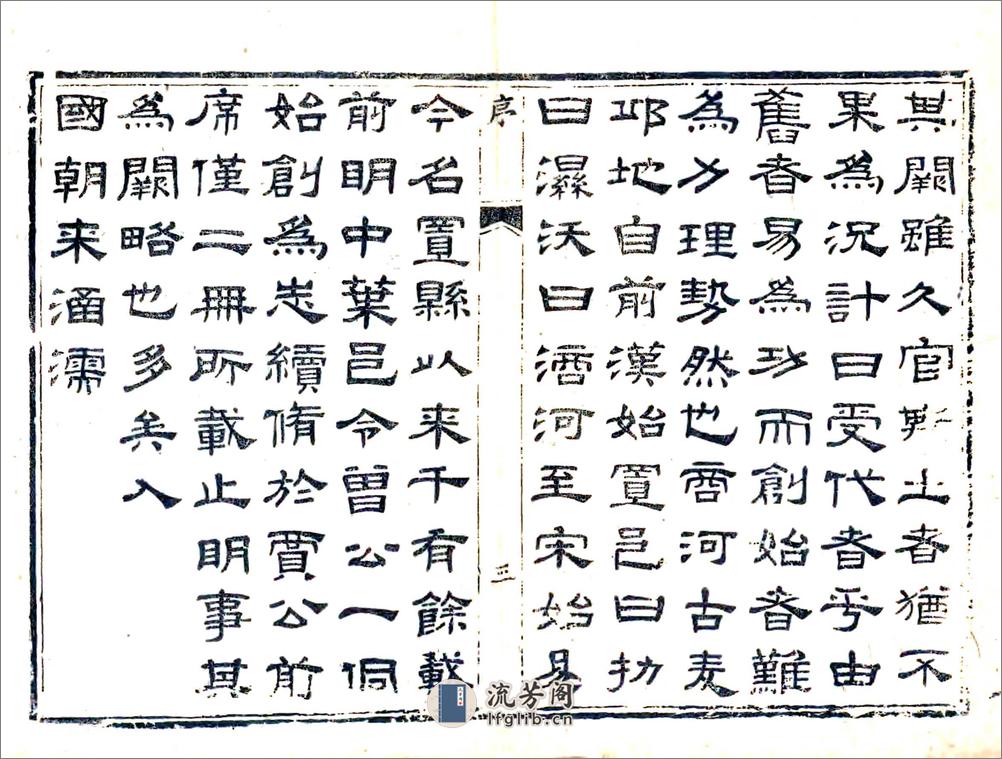 其闕雖久官斯土者猶不
果為況計日受代者乎由
舊者易為功而創始者難
為力理勢然也商河古麦
邱地自前漢始置邑曰朸
曰濕沃曰滳河至宋始易
序
三
今名置縣以来千有餘載
前明中葉邑令曾公一侗
始創為志續脩於賈公前
席僅二冊所載止明事其
為闕略也多矣入
國朝来涵濡
流芳阁
lfglib.cn